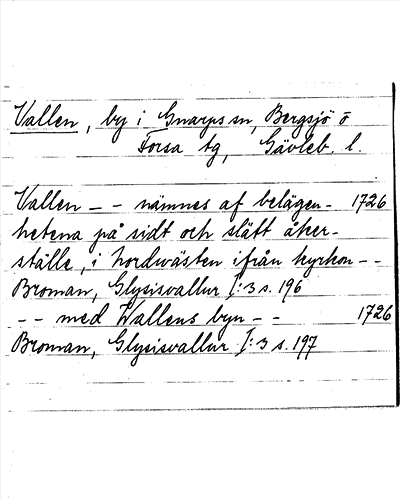 Vallen, by i Gnarps sn, Bergsjö o
Forsa tg, Gävleb. l.
Vallen – – nämnes af belägen- 1726
hetena på sidt och slätt åker-
ställe, i nordwästen ifrån kyrkon – –
Broman, Glysisvallur I:3 s. 196
– – med Wallens byn – – 1726
Broman, Glysisvallur I:3 s. 197